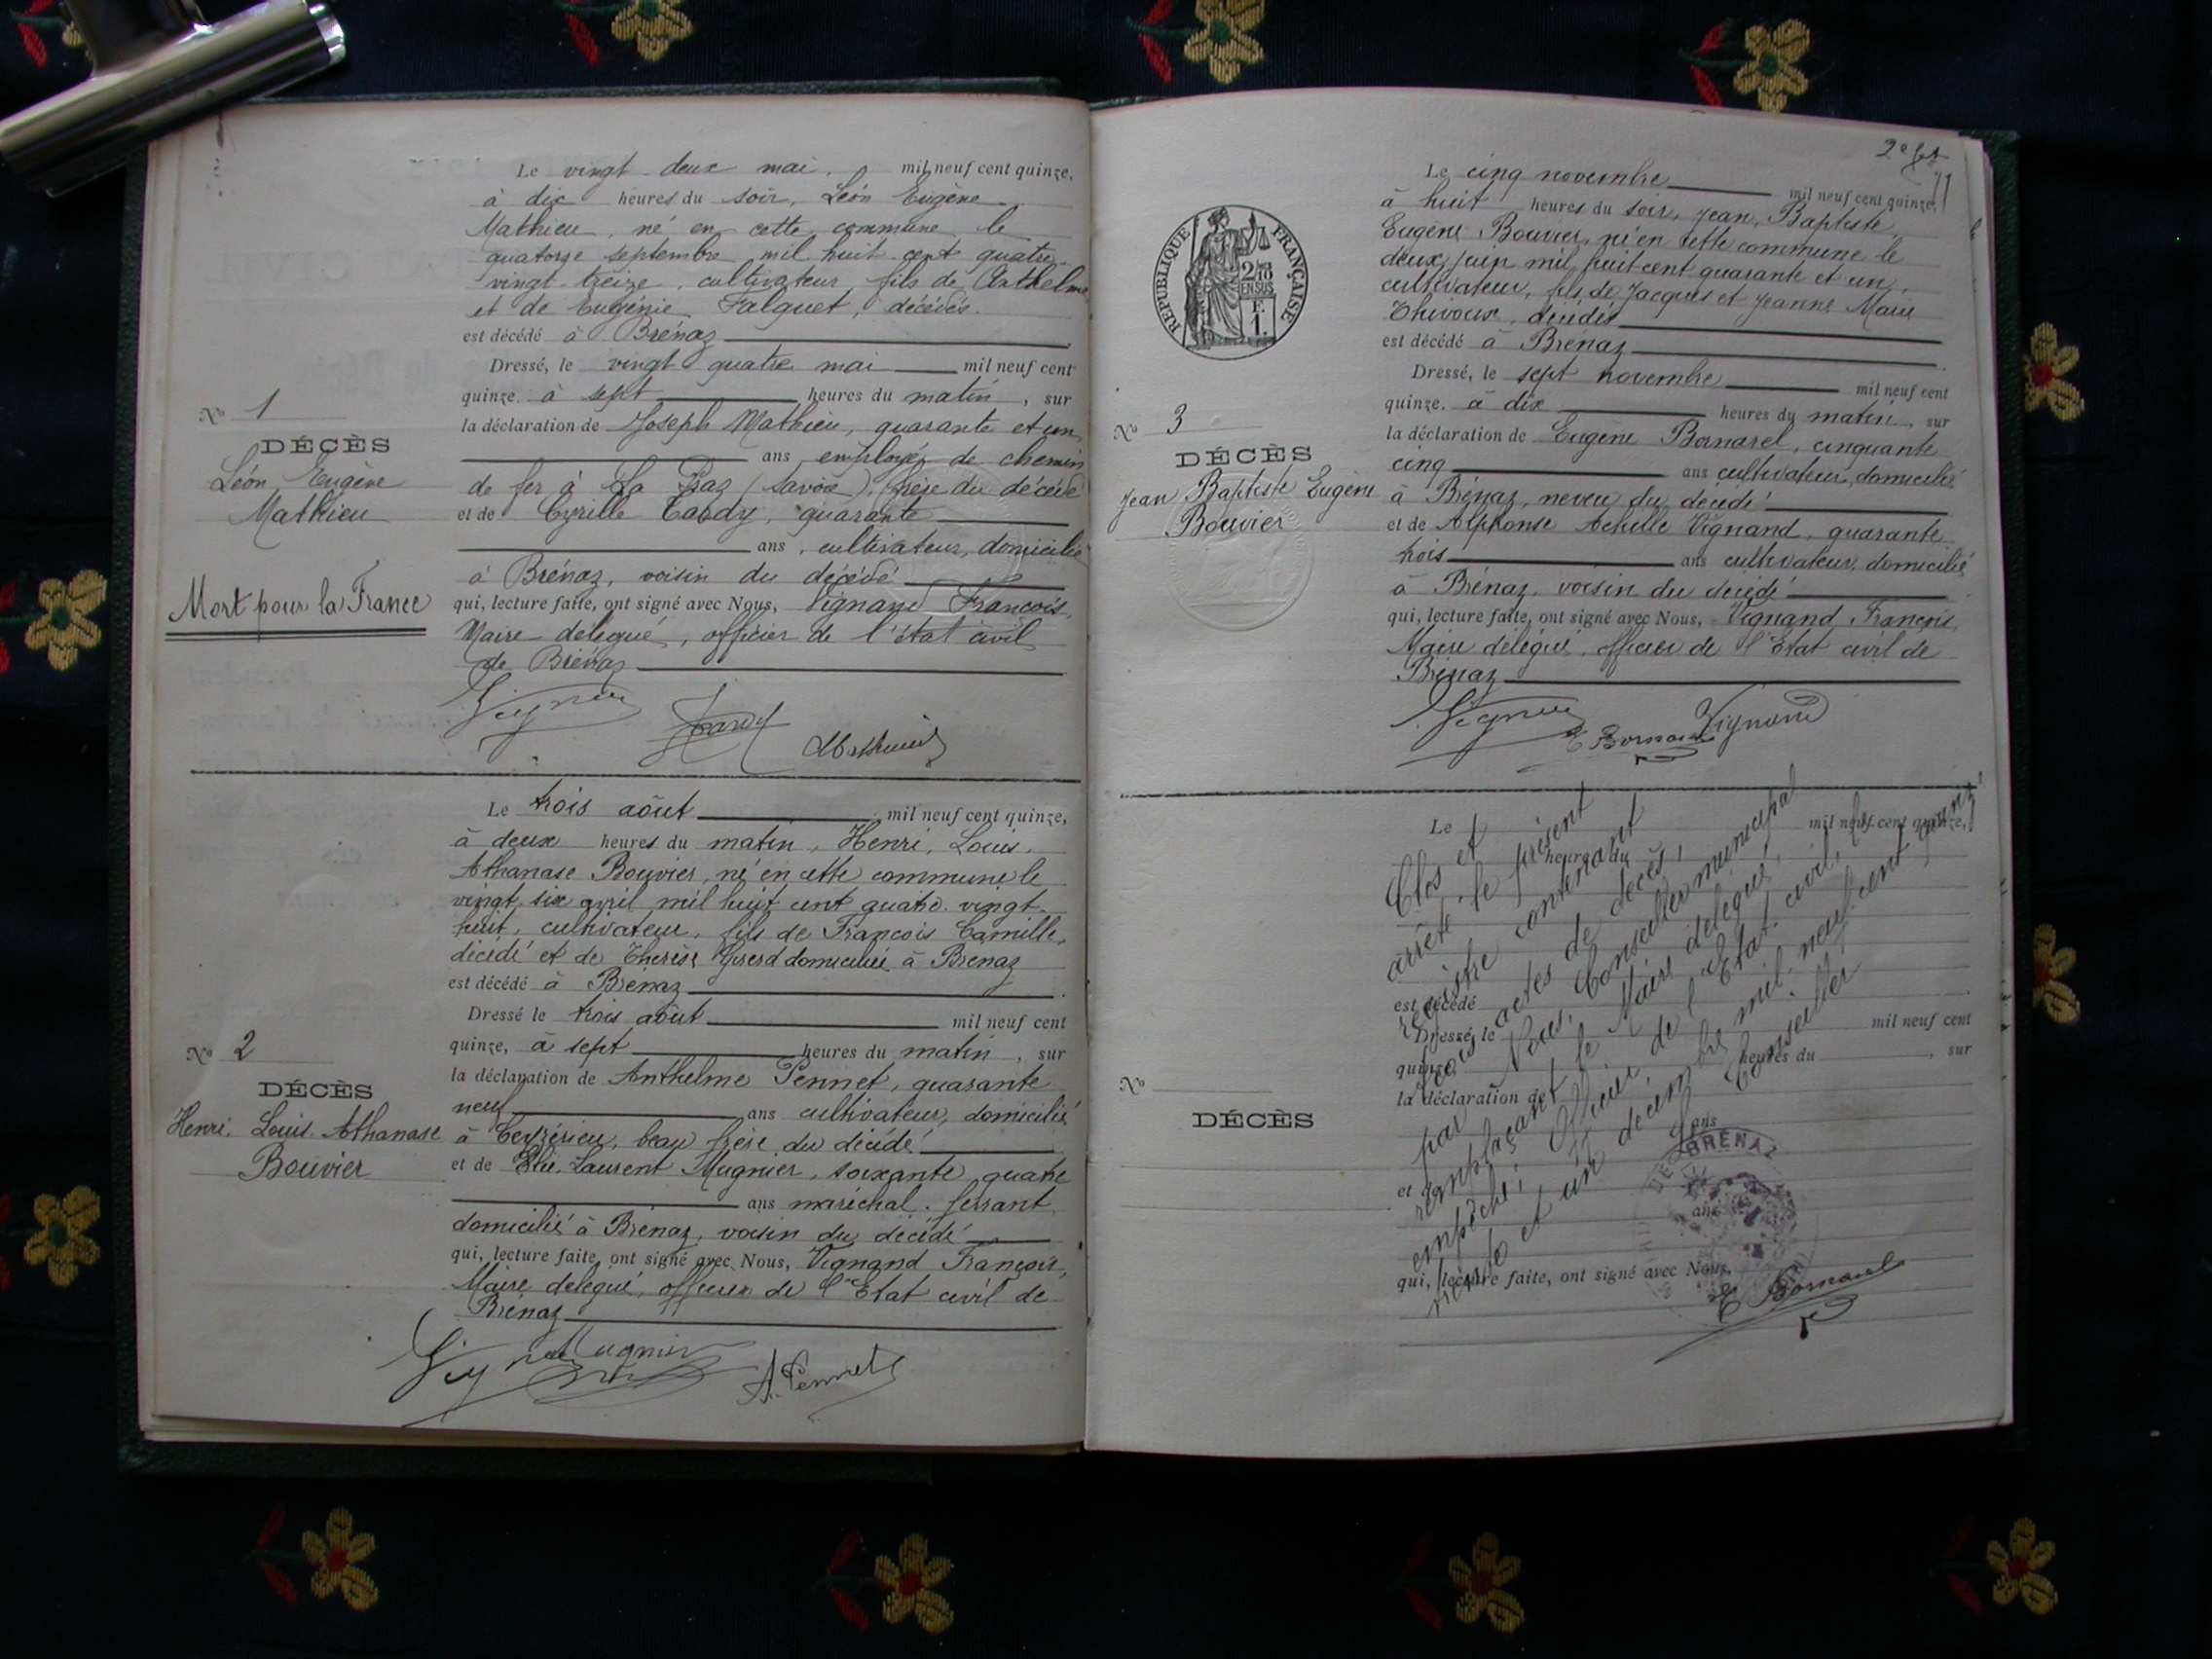 Le vingt deux mai, mil neuf cent quinze,
à dix heures du soir, Léon Eugène
Mathieu, né en cette commune le
quatorze septembre mil huit cent quatre
vingt treize, cultivateur fils de Anthelme
et de Eugénie Falquet, décédés.
est décédé à Brénaz
Dressé, le vingt quatre mai mil neuf cent
quinze. à sept heures du matin, sur
la déclaration de Joseph Mathieu, quarante et un
ans employé de chemin
de fer à La Praz (Savoie), frère du décédé
et de Cyrille Tardy, quarante
ans, cultivateur, domicilié
à Brénaz, voisin du décédé
qui, lecture faite, ont signé avec Nous, Vignand François,
Maire délégué, officier de l'état civil
de Brénaz
No 1
DÉCÈS
Léon Eugène
Mathieu
Mort pour la France
Tardy Mathieu
Le trois août mil neuf cent quinze,
à deux heures du matin, Henri, Louis,
Athanase Bouvier, né en cette commune le
vingt six avril mil huit cent quatre-vingt-
huit, cultivateur, fils de François Camille,
décédé et de Thérèse Girerd domiciliée à Brénaz
est décédé à Brénaz
Dressé le trois août mil neuf cent
quinze, à sept heures du matin, sur
la déclaration de Anthelme Pennet, quarante
neuf ans cultivateur, domicilié
à Ceyzérieu, beau frère du décédé
et de Élie Laurent Mugnier, soixante quatre
ans maréchal-ferrant
domicilié à Brénaz, voisin du décédé
qui, lecture faite, ont signé avec Nous, Vignand François,
Maire délégué, officier de l'Etat civil de
Brénaz
No 2
DÉCÈS
Henri. Louis. Athanase
Bouvier
Mugnier A. Pennet
2e ft
Le cinq novembre mil neuf cent quinze,
à huit heures du soir, Jean, Baptiste
Eugène Bouvier, né en cette commune le
deux juin mil huit cent quarante et un,
cultivateur, fils de Jacques et Jeanne Marie
Thivoux, décédés
est décédé à Brénaz
Dressé, le sept novembre mil neuf cent
quinze. à dix heures du matin, sur
la déclaration de Eugène Bornarel, cinquante
cinq ans cultivateur, domicilié
à Brénaz, neveu du décédé
et de Alphonse Achille Vignand, quarante
trois ans cultivateur, domicilié
à Brénaz, voisin du décédé
qui, lecture faite, ont signé avec Nous, Vignand François
Maire délégué, officier de l'Etat civil de
Brénaz
RÉPUBLIQUE FRANÇAISE
2/10
EN SUS
F.
1.
No 3
DÉCÈS
Jean Baptiste Eugène
Bouvier
E Bornarel Vignand
Le mil neuf cent quinze,
heures du
est décédé
Dressé, le mil neuf cent
quinze, heures du , sur
la déclaration de
ans
et de
ans
qui, lecture faite, ont signé avec Nous,
No
DÉCÈS
Clos et
arrêté le présent
registre contenant
trois actes de décès,
par Nous, Conseiller municipal
remplaçant le Maire délégué,
empêché, Officier de l'Etat civil, le
trente et un décembre mil neuf cent quinze
Le Conseiller
DE BRÉNAZ
E Bornarel